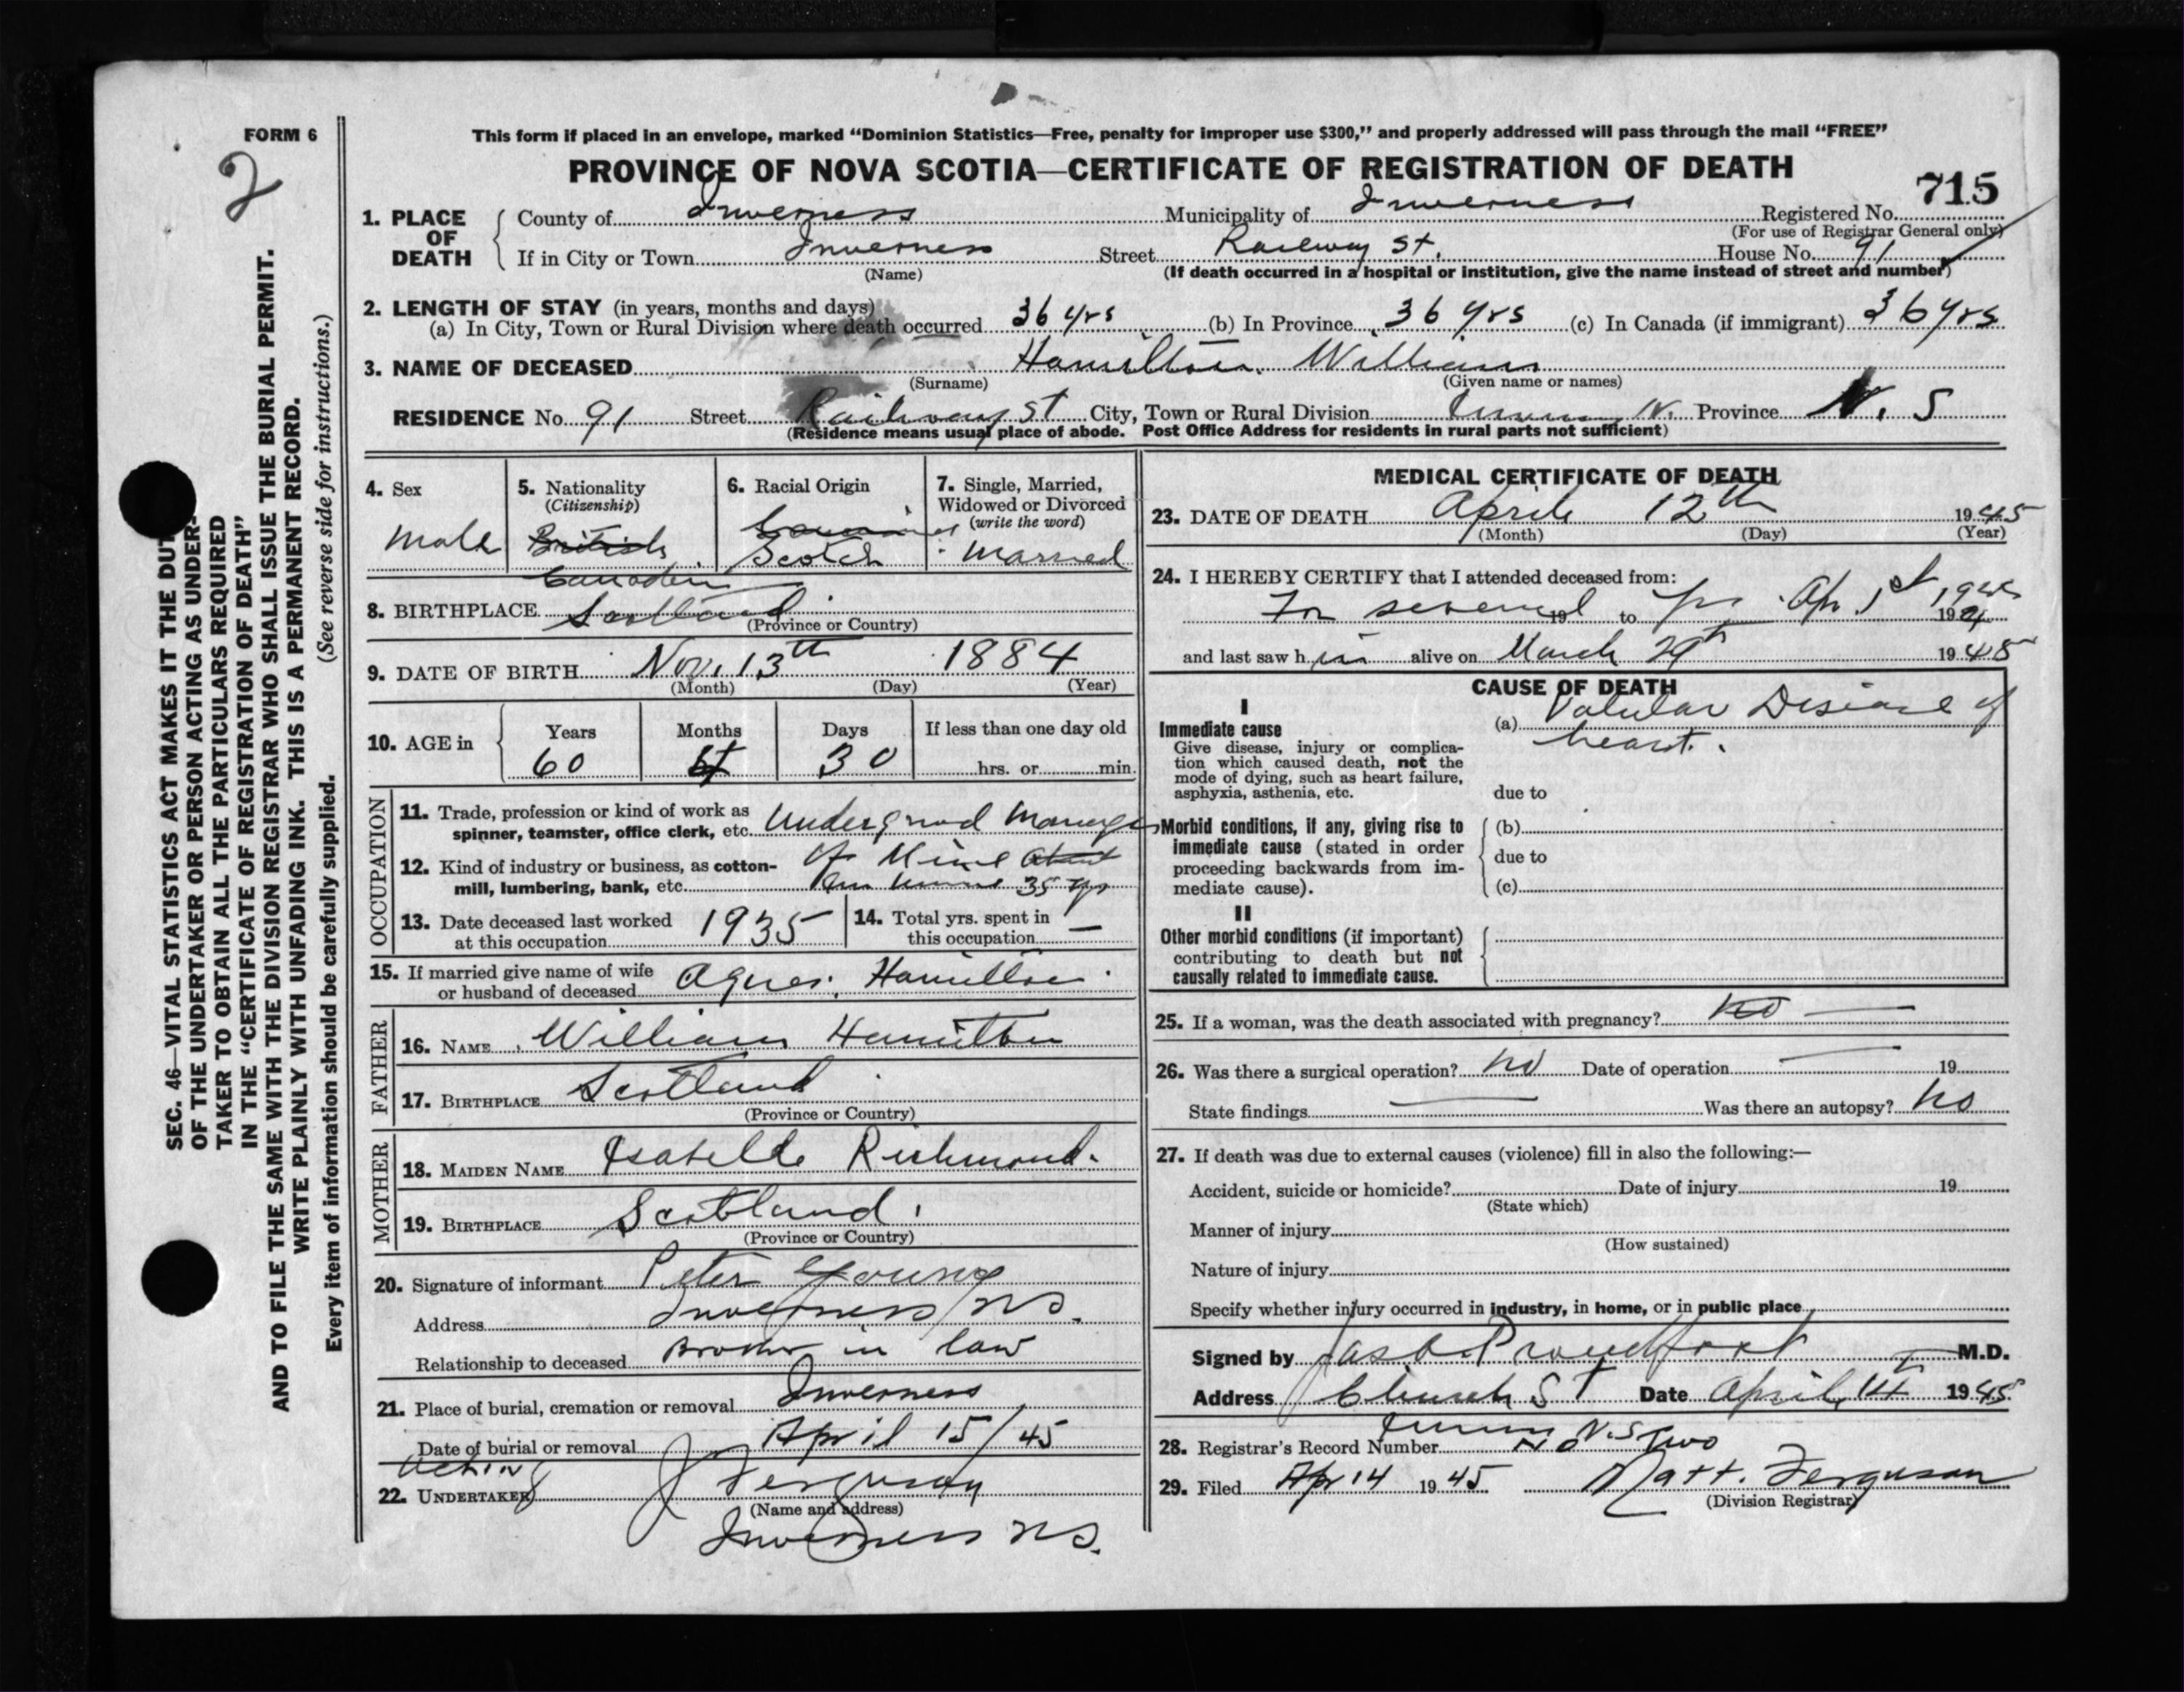 FORM 6
2
This form if placed in an envelope, marked “Dominion Statistics—Free, penalty for improper use $300,” and properly addressed will pass through the mail “FREE”
PROVINCE OF NOVA SCOTIA—CERTIFICATE OF REGISTRATION OF DEATH
715
1. PLACE OF DEATH County of Inverness Municipality of Inverness Registered No.
(For use of Registrar General only)
If in City or Town Inverness Street Railway St. House No. 91
(Name) (If death occurred in a hospital or institution, give the name instead of street and number)
2. LENGTH OF STAY (in years, months and days)
(a) In City, Town or Rural Division where death occurred 36 yrs (b) In Province 36 yrs (c) In Canada (if immigrant) 36 yrs
3. NAME OF DECEASED Hamilton. William
(Surname) (Given name or names)
RESIDENCE No. 91 Street Railway St City, Town or Rural Division Province N. S
(Residence means usual place of abode. Post Office Address for residents in rural parts not sufficient)
4. Sex
Male
5. Nationality
(Citizenship)
British
Canadian
6. Racial Origin
Scotch
7. Single, Married,
Widowed or Divorced
(write the word)
Married
8. BIRTHPLACE Scotland
(Province or Country)
9. DATE OF BIRTH Nov. 13th 1884
(Month) (Day) (Year)
10. AGE in Years Months Days If less than one day old
60 30 hrs. or min.
OCCUPATION
11. Trade, profession or kind of work as
spinner, teamster, office clerk, etc. Undergrod Manager
12. Kind of industry or business, as cotton-
mill, lumbering, bank, etc. of Mine
35 yrs
13. Date deceased last worked
at this occupation 1935
14. Total yrs. spent in
this occupation —
15. If married give name of wife
or husband of deceased Agnes Hamilton
FATHER
16. NAME William Hamilton
17. BIRTHPLACE Scotland
(Province or Country)
MOTHER
18. MAIDEN NAME Isabella Richmond.
19. BIRTHPLACE Scotland
(Province or Country)
20. Signature of informant Peter Young
Address Inverness N.S.
Relationship to deceased Brother in law
21. Place of burial, cremation or removal Inverness
Date of burial or removal April 15/45
Acting
22. UNDERTAKER J Ferguson
(Name and address)
Inverness NS.
MEDICAL CERTIFICATE OF DEATH
23. DATE OF DEATH April 12th 1945
(Month) (Day) (Year)
24. I HEREBY CERTIFY that I attended deceased from:
For several 19 to yrs Apr 1st 1945 19
and last saw him alive on March 29th 1945
CAUSE OF DEATH
I
Immediate cause
Give disease, injury or complica-
tion which caused death, not the
mode of dying, such as heart failure,
asphyxia, asthenia, etc.
(a) Valvular Disease of
heart.
due to
Morbid conditions, if any, giving rise to
immediate cause (stated in order
proceeding backwards from im-
mediate cause).
(b)
due to
(c)
II
Other morbid conditions (if important)
contributing to death but not
causally related to immediate cause.
25. If a woman, was the death associated with pregnancy? no —
26. Was there a surgical operation? no Date of operation — 19
State findings — Was there an autopsy? no
27. If death was due to external causes (violence) fill in also the following:—
Accident, suicide or homicide? Date of injury 19
(State which)
Manner of injury
(How sustained)
Nature of injury
Specify whether injury occurred in industry, in home, or in public place
Signed by Proudfoot M.D.
Address Church St Date April 14 1945
N.S
28. Registrar's Record Number No Two
29. Filed Apr 14 1945 Matt. Ferguson
(Division Registrar)
SEC. 46—VITAL STATISTICS ACT MAKES IT THE DUTY
OF THE UNDERTAKER OR PERSON ACTING AS UNDER-
TAKER TO OBTAIN ALL THE PARTICULARS REQUIRED
IN THE “CERTIFICATE OF REGISTRATION OF DEATH”
AND TO FILE THE SAME WITH THE DIVISION REGISTRAR WHO SHALL ISSUE THE BURIAL PERMIT.
WRITE PLAINLY WITH UNFADING INK. THIS IS A PERMANENT RECORD.
(See reverse side for instructions.)
Every item of information should be carefully supplied.